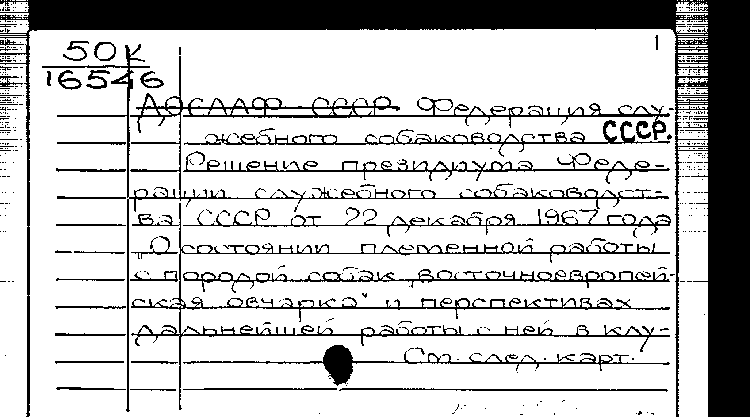 1
50к
16546
ДОСААФ СССР. Федерация слу-
жебного собаководства СССР.
Решение президиума Феде-
рации служебного собаководст-
ва СССР от 22 декабря 1967 года
„О состоянии племенной работы
с породой собак „восточноевропей-
ская овчарка" и перспективах
дальнейшей работы с ней в клу-
См. след. карт.